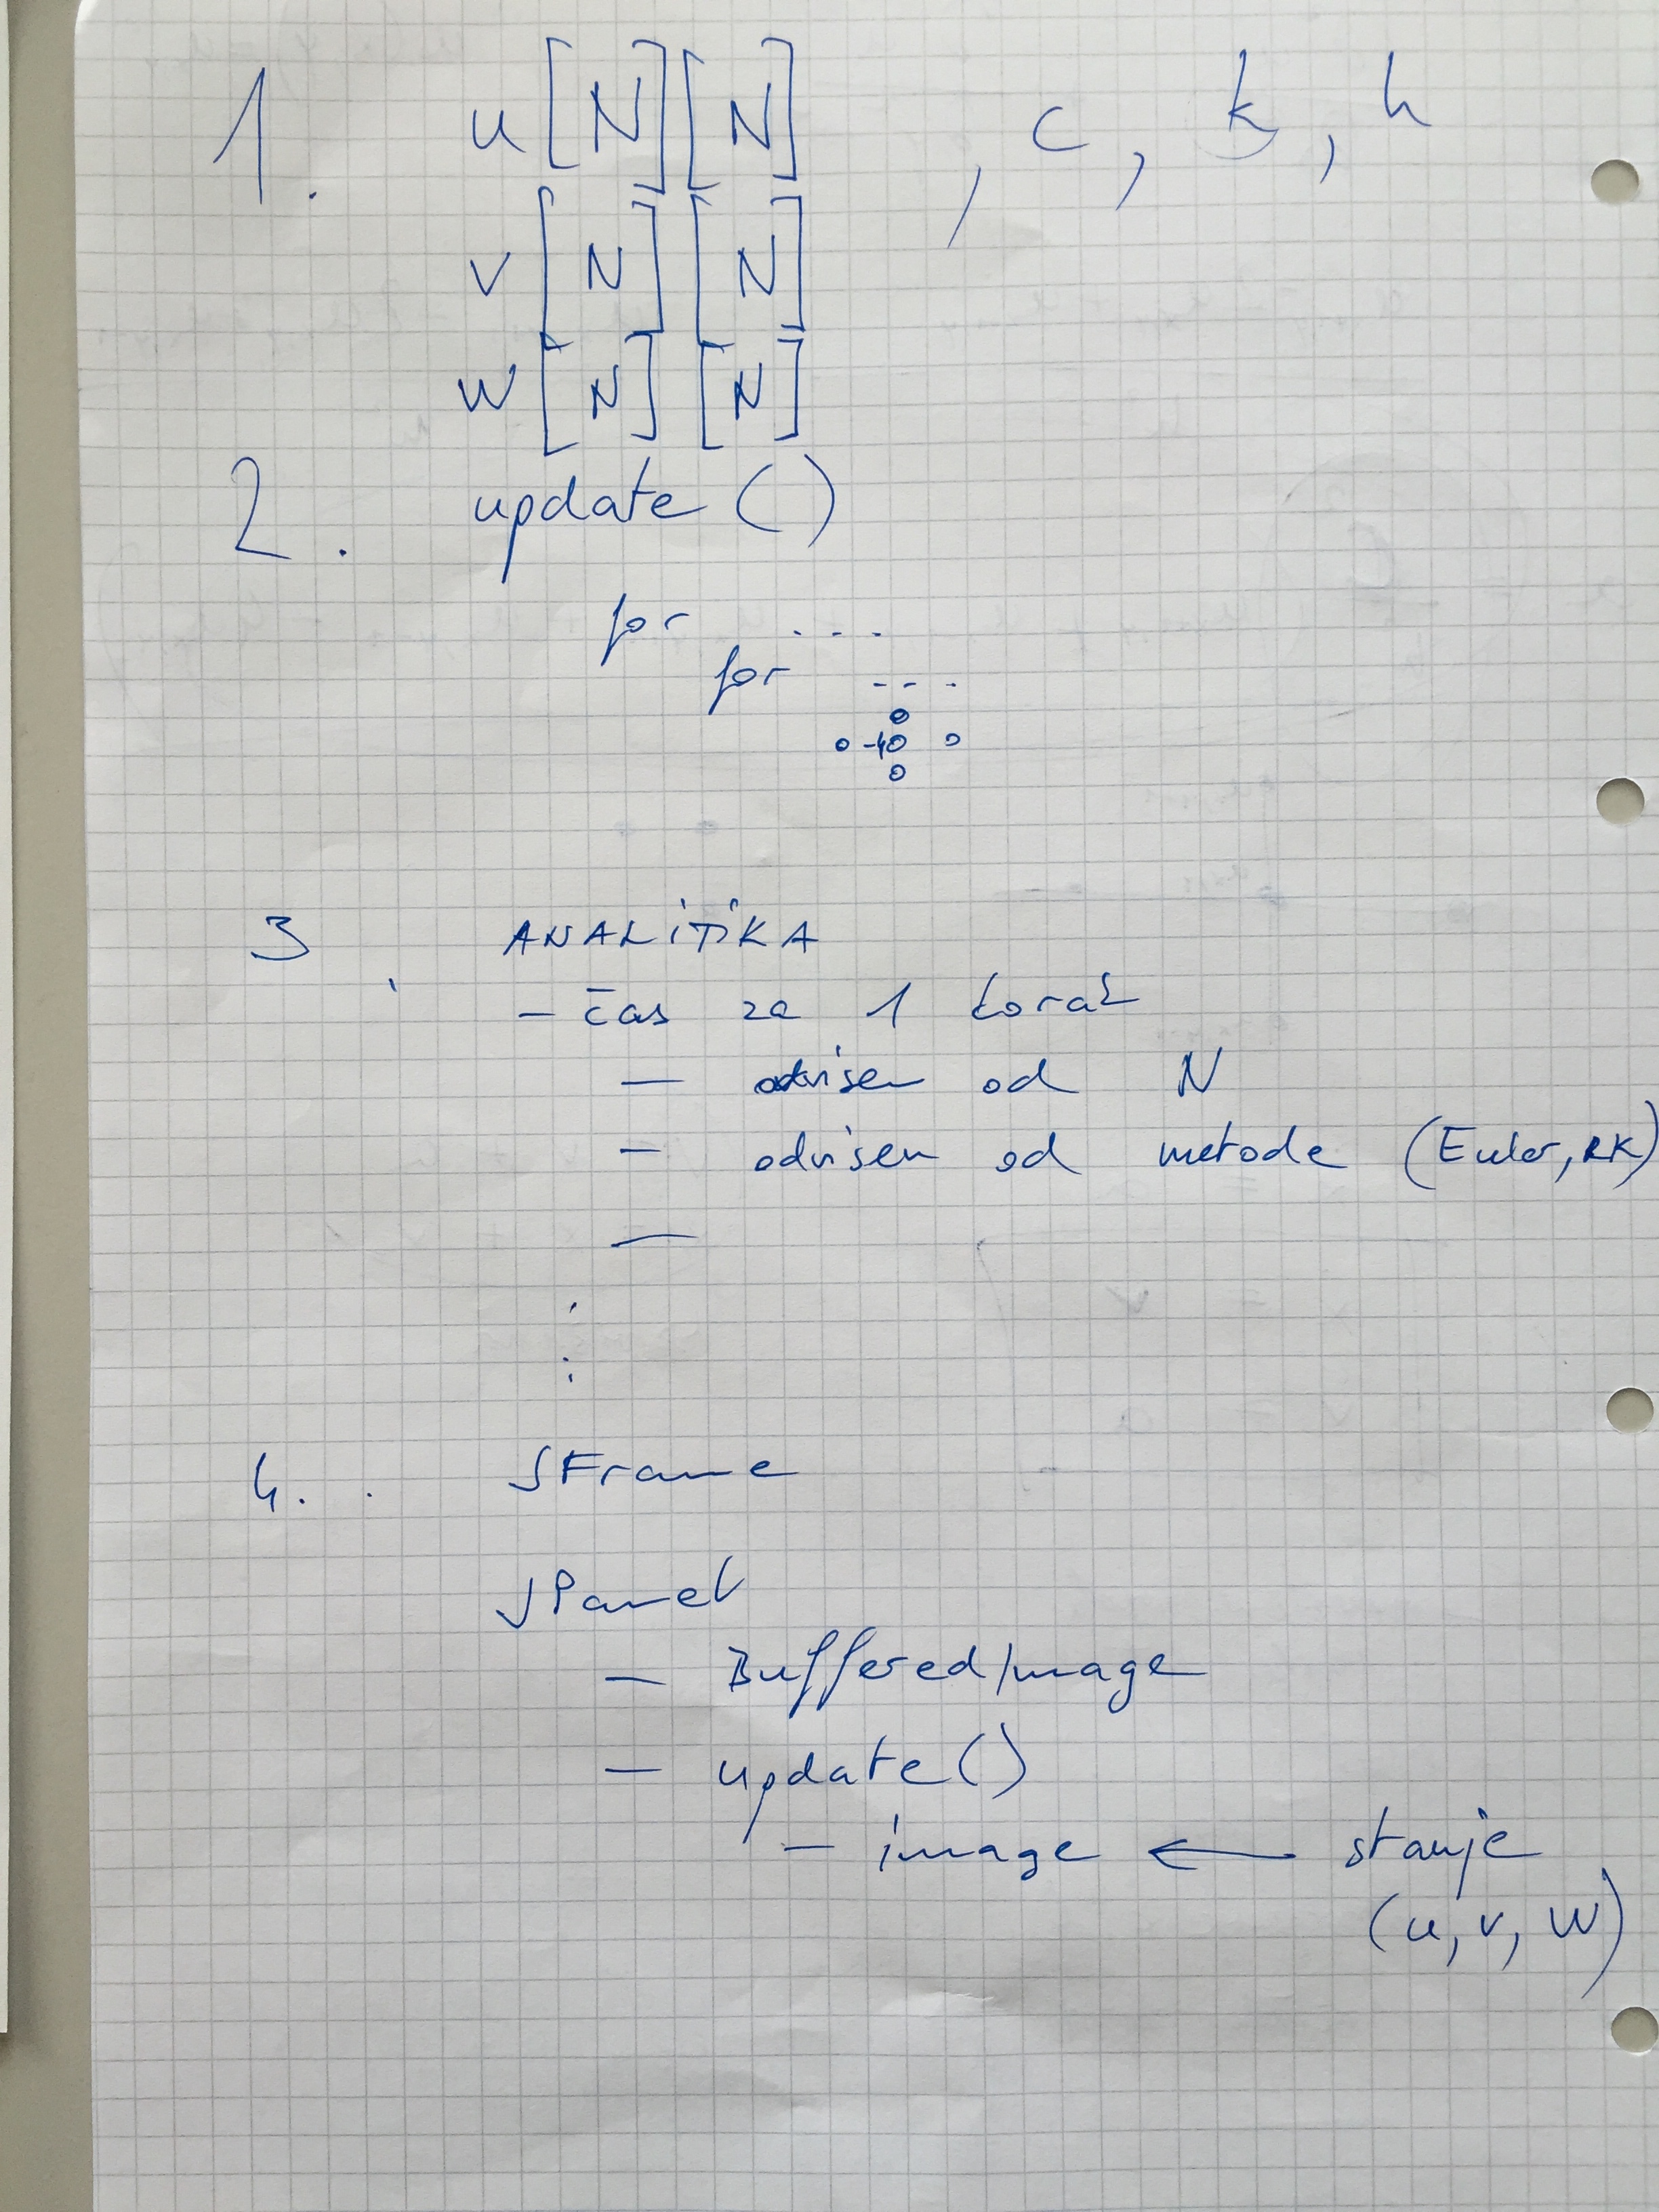 1. u[N][N] , c, k, h
v[N][N]
w[N][N]
2. update()
for ...
for ---
o
o -4o o
o
3. ANALiTiKA
- čas za 1 korak
- odvisen od N
- odvisen od metode (Euler, RK)
-
:
4. JFrame
JPanel
- BufferedImage
- update()
- image ← stanje
(u, v, w)